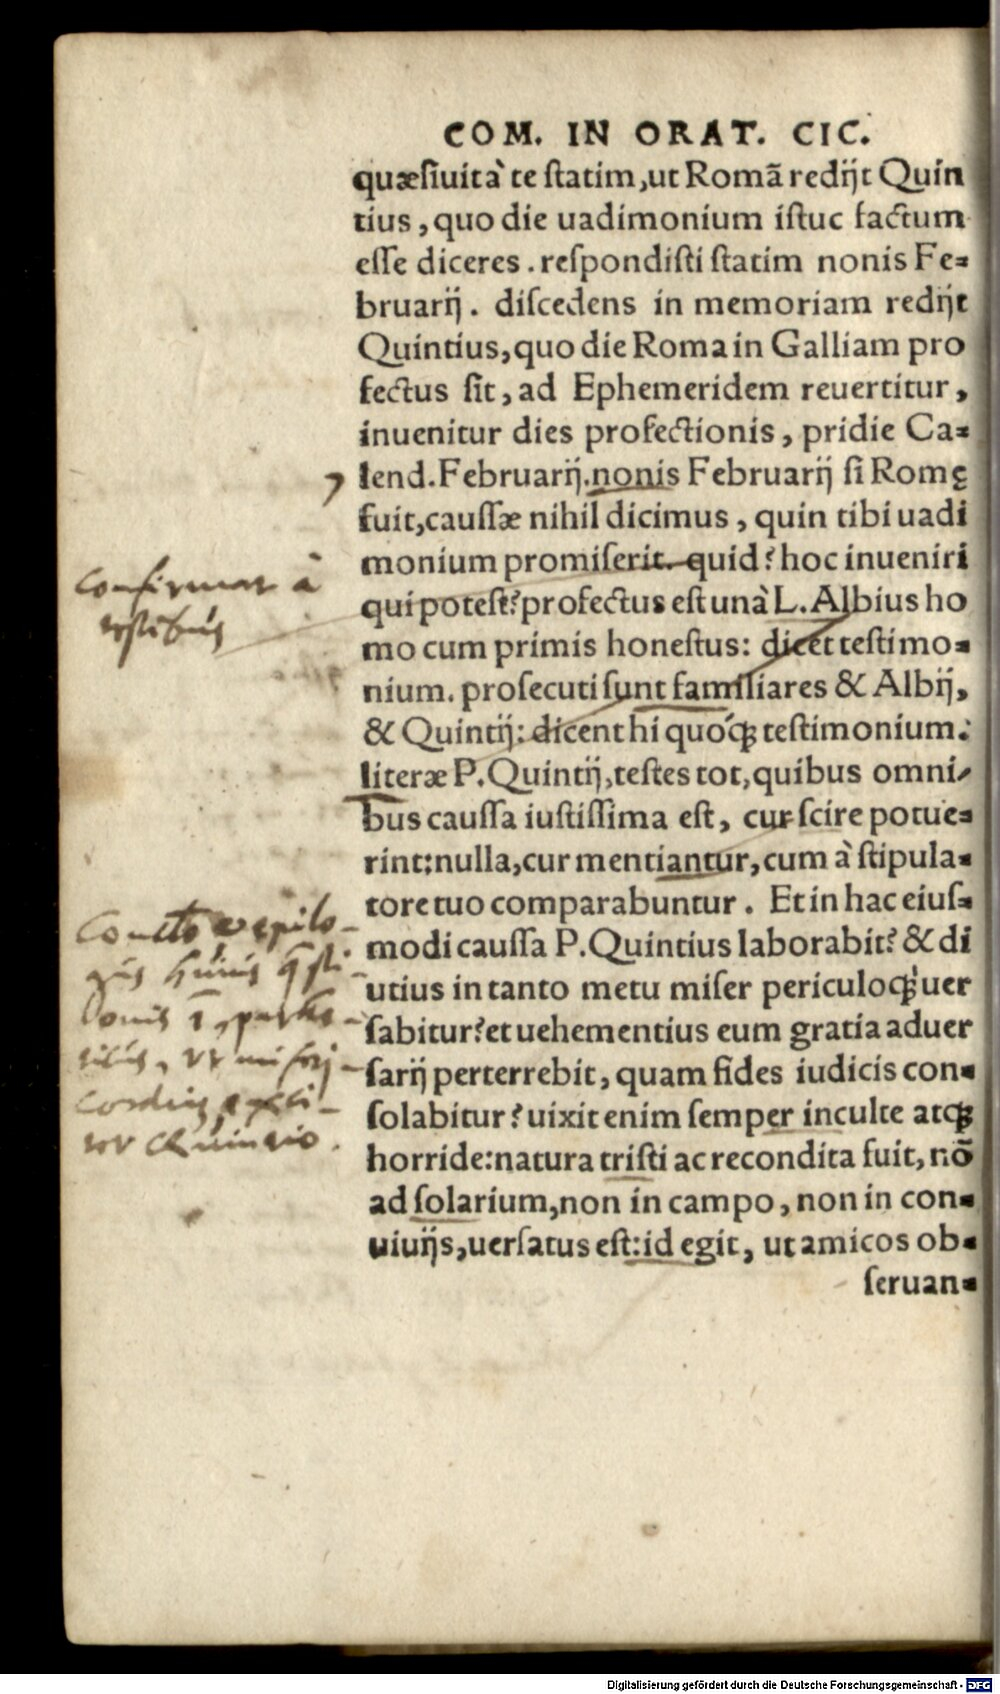 COM. IN ORAT. CIC.
quæsiuit à te statim, ut Romã redijt Quin
tius, quo die uadimonium istuc factum
esse diceres. respondisti statim nonis Fe=
bruarij. discedens in memoriam redijt
Quintius, quo die Roma in Galliam pro
fectus sit, ad Ephemeridem reuertitur,
inuenitur dies profectionis, pridie Ca=
lend. Februarij. nonis Februarij si Romę
fuit, caussæ nihil dicimus, quin tibi uadi
monium promiserit. quid? hoc inueniri
qui potest? profectus est unà L. Albius ho
mo cum primis honestus: dicet testimo=
nium. prosecuti sunt familiares & Albij,
& Quintij: dicent hi quoq́; testimonium:
literæ P. Quintij, testes tot, quibus omni/
bus caussa iustissima est, cur scire potue=
rint: nulla, cur mentiantur, cum à stipula=
tore tuo comparabuntur. Et in hac eius=
modi caussa P. Quintius laborabit? & di
utius in tanto metu miser periculoq́; uer
sabitur? et uehementius eum gratia aduer
sarij perterrebit, quam fides iudicis con=
solabitur? uixit enim semper inculte atq;
horride: natura tristi ac recondita fuit, nõ
ad solarium, non in campo, non in con=
uiuijs, uersatus est: id egit, ut amicos ob=
seruan=
confirmat à
testibus